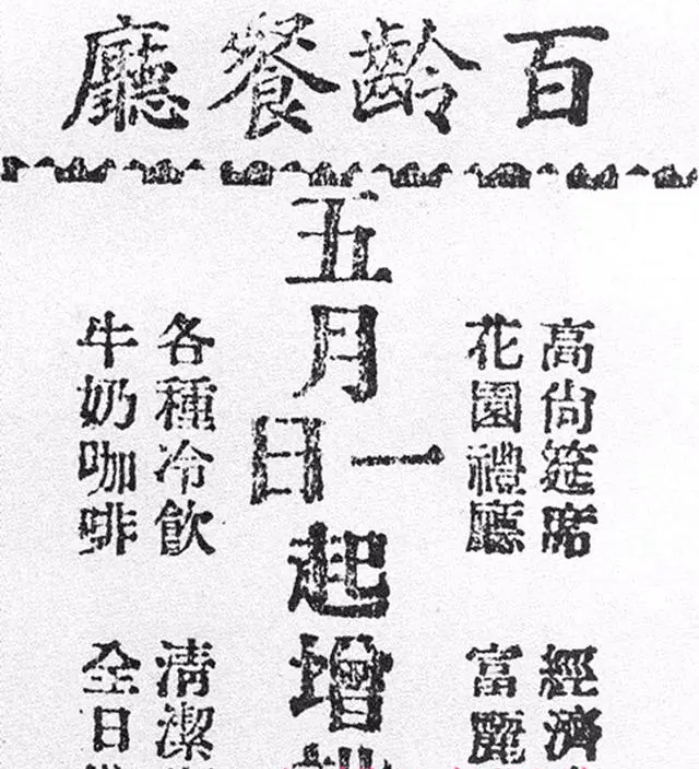 百齡餐廳
高尙筵席 經濟
花園禮廳 富麗
五月一日起增
各種冷飲 清潔
牛奶咖啡 全日